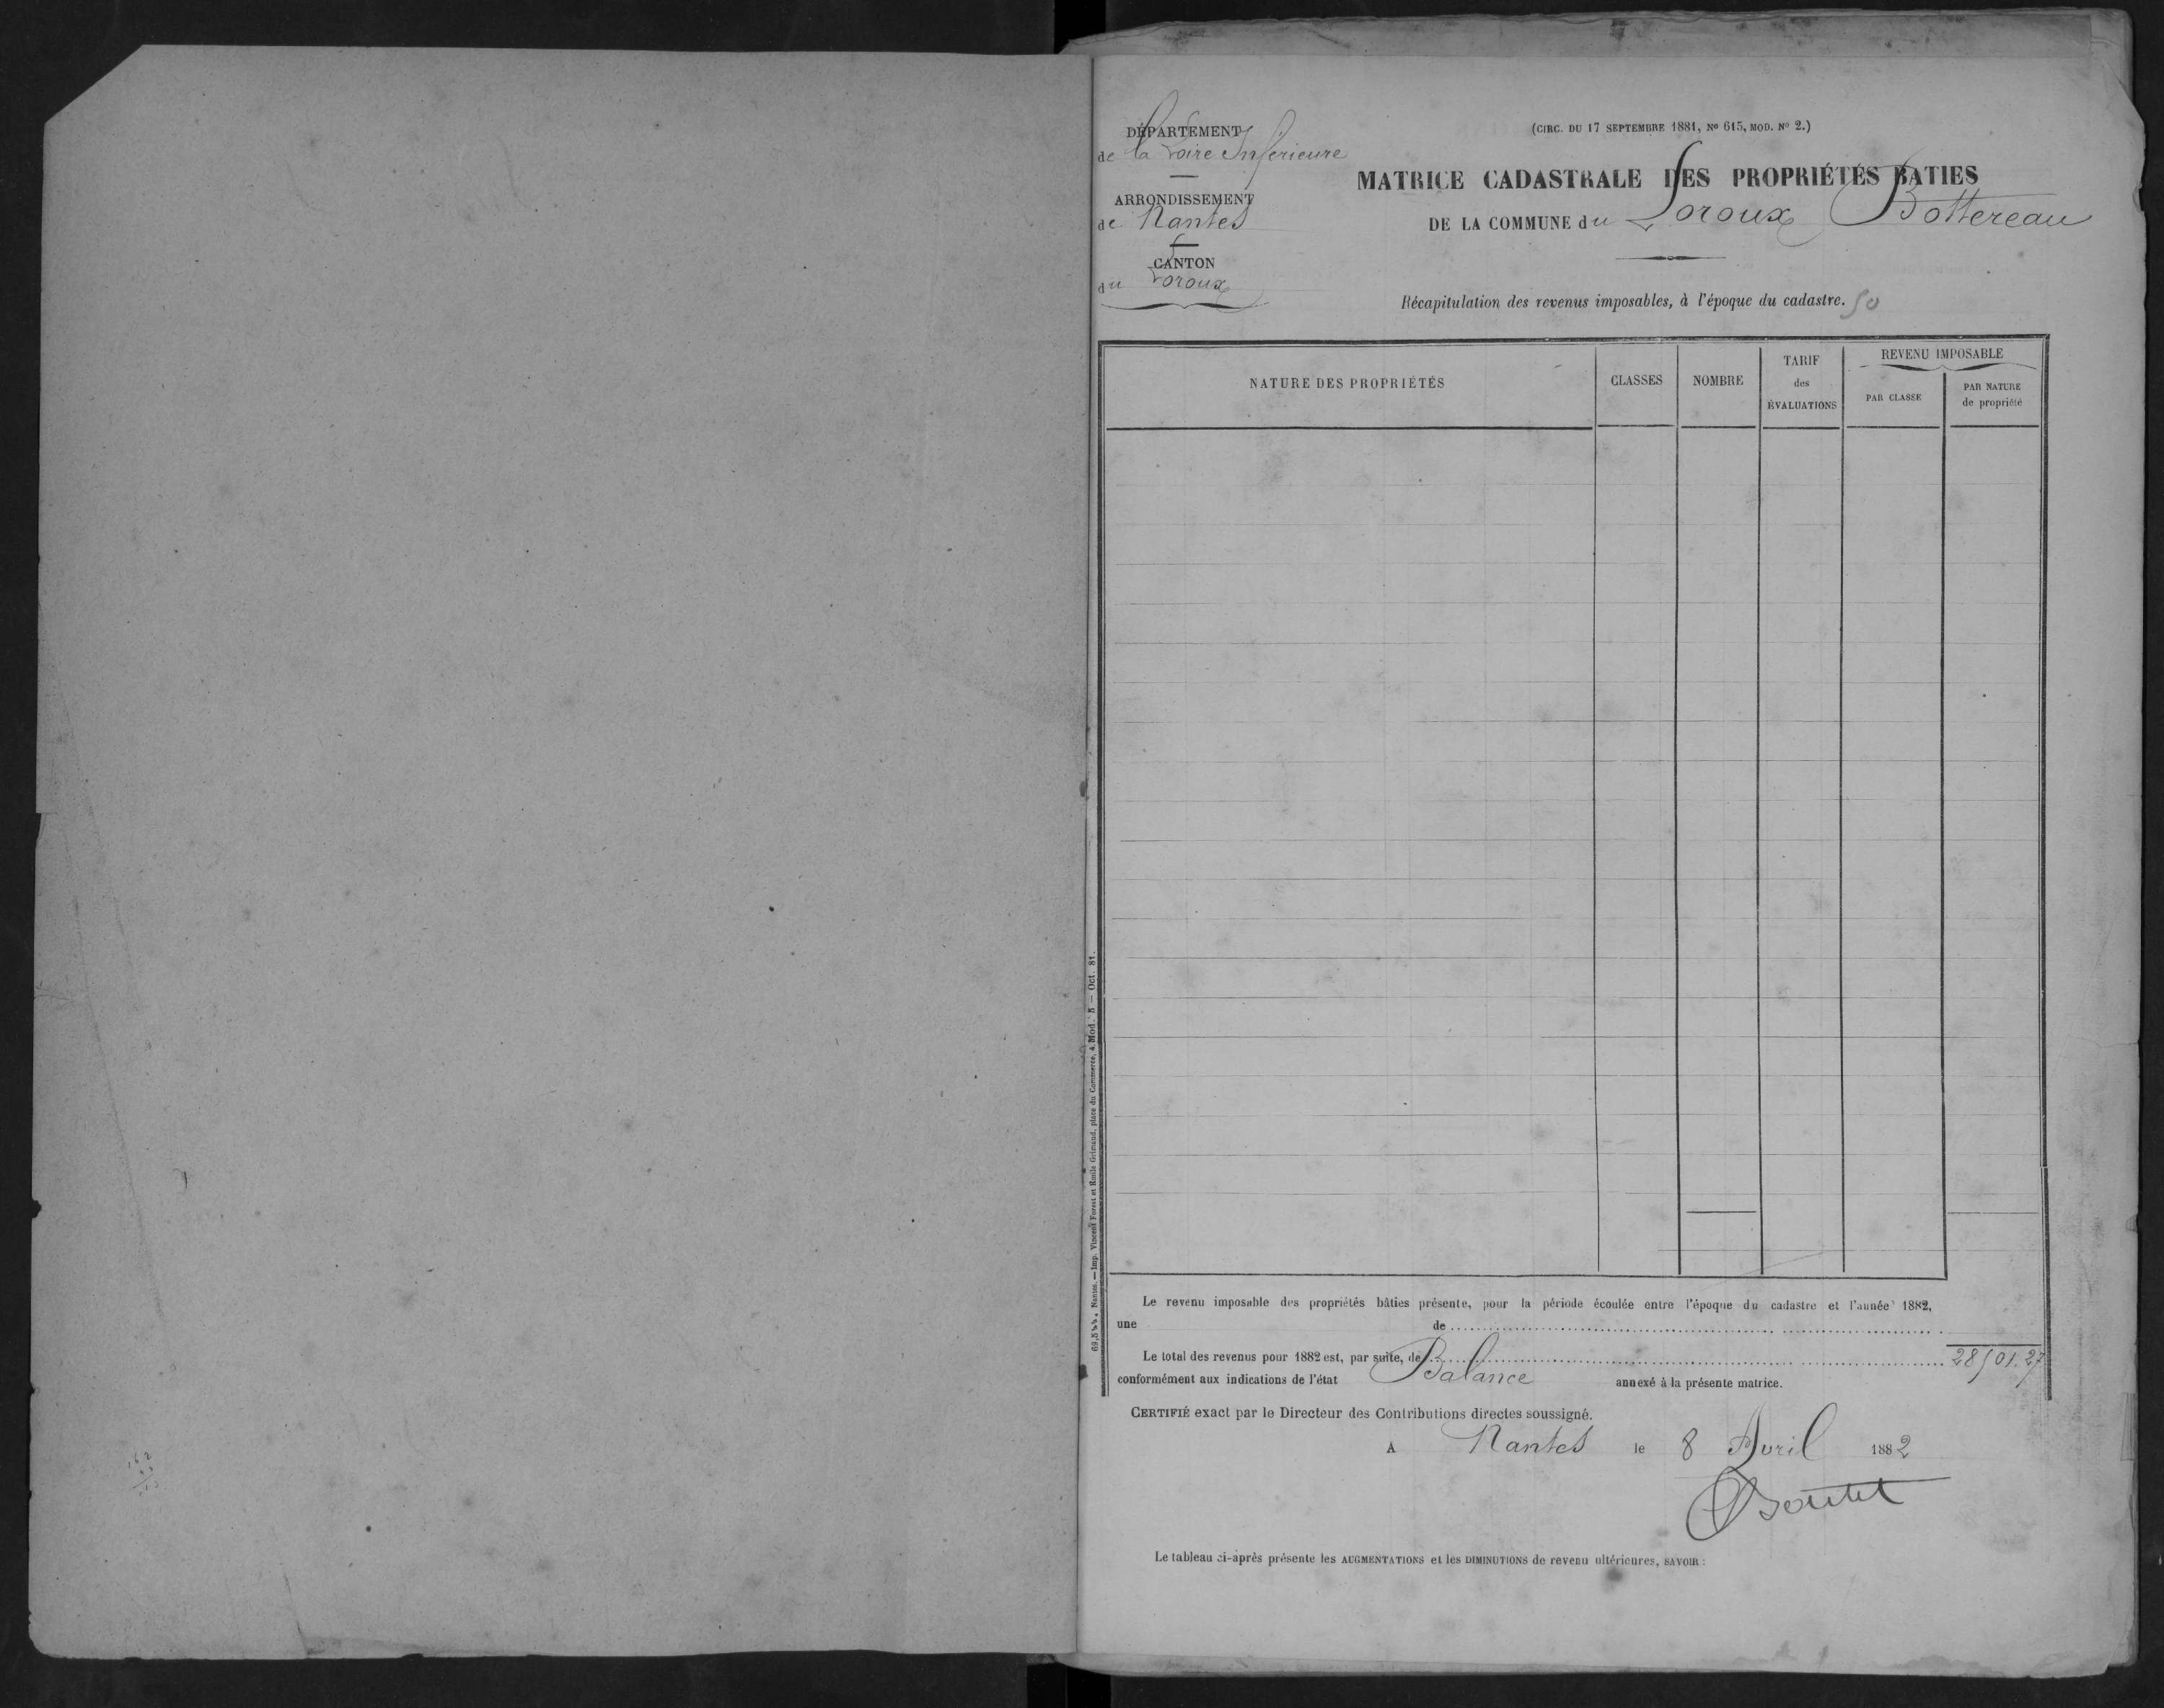 DÉPARTEMENT
de la Loire Inférieure
ARRONDISSEMENT
de Nantes
CANTON
du Loroux
(CIRC. DU 17 SEPTEMBRE 1881, No 615, MOD. No 2.)
MATRICE CADASTRALE DES PROPRIÉTÉS BATIES
DE LA COMMUNE du Loroux Bottereau
Récapitulation des revenus imposables, à l'époque du cadastre. 50
NATURE DES PROPRIÉTÉS
CLASSES
NOMBRE
TARIF
des
ÉVALUATIONS
REVENU IMPOSABLE
PAR CLASSE
PAR NATURE
de propriété
Le revenu imposable des propriétés bâties présente, pour la période écoulée entre l'époque du cadastre et l'année 1882,
une de
Le total des revenus pour 1882 est, par suite, de 28501.27
conformément aux indications de l'état Balance annexé à la présente matrice.
CERTIFIÉ exact par le Directeur des Contributions directes soussigné.
A Nantes le 8 Avril 1882
Le tableau ci-après présente les AUGMENTATIONS et les DIMINUTIONS de revenu ultérieures, SAVOIR :
Nantes. — Imp. Vincent Forest et Emile Grimaud, place du Commerce, 4. Mod. 5 — Oct. 81.